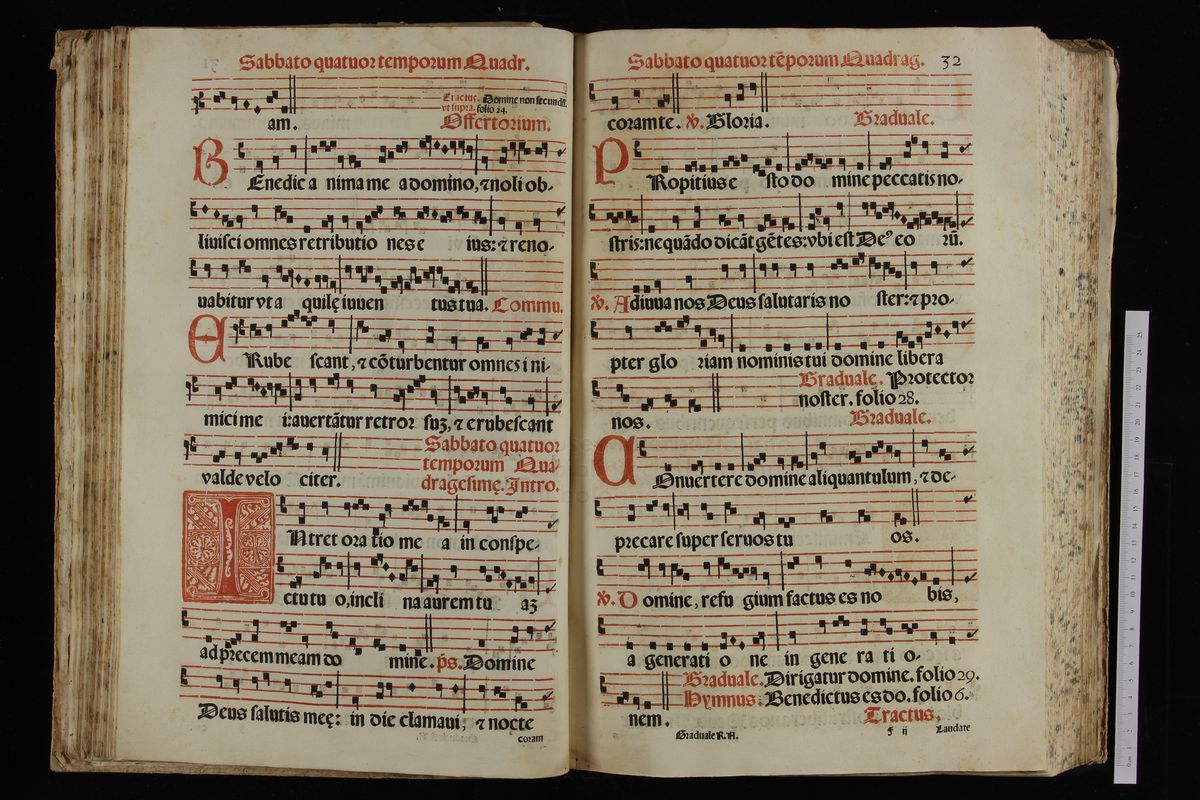 Sabbato quatuor temporum Quadr.
Tractus. Domine non secundũ.
vt supra. folio 24.
am. Offertorium.
BEnedic a nima me a domino, ⁊ noli ob-
liuisci omnes retributio nes e ius: ⁊ reno-
uabitur vt a quilę iuuen tus tua. Commu.
ERube scant, ⁊ cõturbentur omnes i ni-
mici me i: auertãtur retror suꝫ, ⁊ erubescant
valde velo citer. Sabbato quatuor
temporum Qua-
dragesimę. Intro.
INtret ora tio me a in conspe-
ctu tu o, incli na aurem tu aꝫ
ad precem meam do mine. p̃s. Domine
Deus salutis meę: in die clamaui, ⁊ nocte
coram
Sabbato quatuor tẽporum Quadrag. 32
coram te. ℣. Gloria. Graduale.
PRopitius e sto do mine peccatis no-
stris: ne quãdo dicãt gẽtes: vbi est De⁹ eo rũ.
℣. Adiuua nos Deus salutaris no ster: ⁊ pro-
pter glo riam nominis tui domine libera
Graduale. Protector
noster. folio 28.
nos. Graduale.
COnuertere domine aliquantulum, ⁊ de-
precare super seruos tu os.
℣. Domine, refu gium factus es no bis,
a generati o ne in gene ra ti o-
Graduale. Dirigatur domine. folio 29.
Hymnus. Benedictus es do. folio 6.
nem. Tractus.
Graduale R.A. F ij Laudate